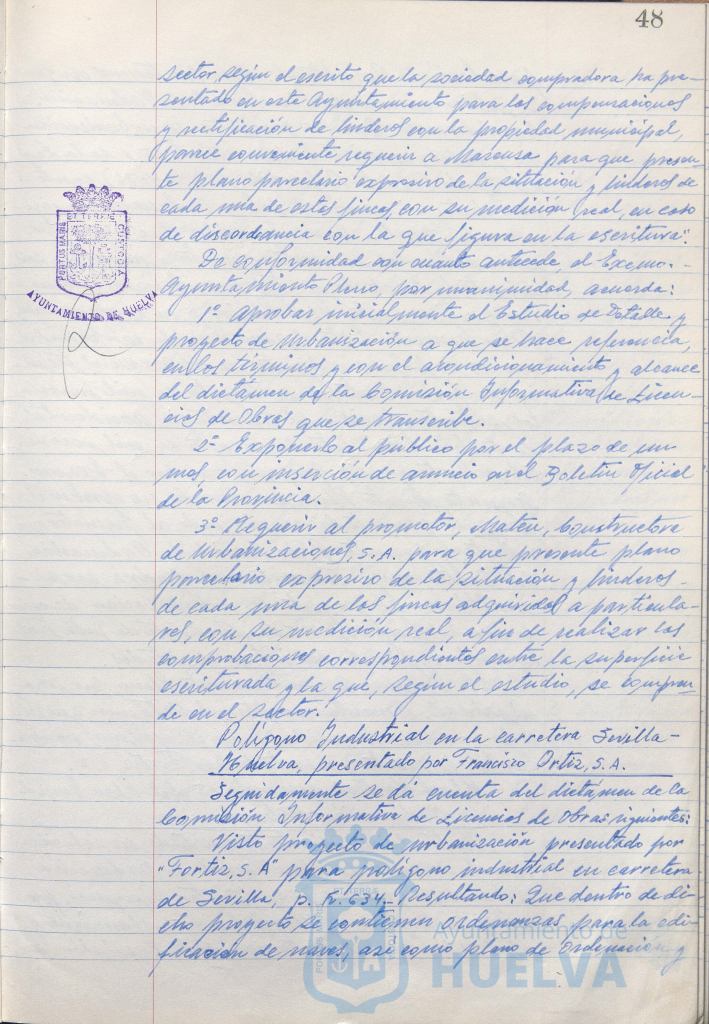 48
sector, según el escrito que la sociedad compradora ha pre-
sentado en este Ayuntamiento para las compensaciones
y rectificación de linderos con la propiedad municipal,
parece conveniente requerir a para que presen-
te plano parcelario expresivo de la situación y linderos de
cada una de estas fincas, con su medición real, en caso
de discordancia con la que figura en la escritura".
De conformidad con cuanto antecede, el Excmo.-
Ayuntamiento Pleno, por unanimidad, acuerda:
1º Aprobar inicialmente el Estudio de Detalle y
proyecto de Urbanización a que se hace referencia,
en los términos y con el acondicionamiento y alcance
del dictámen de la Comisión Informativa de Licen-
cias de Obras que se transcribe.
2º Exponerlo al público por el plazo de un
mes, con inserción de anuncio en el Boletín Oficial
de la Provincia.
3º Requerir al promotor, Mateu, Constructora
de Urbanizaciones, S.A. para que presente plano
parcelario expresivo de la situación y linderos-
de cada una de las fincas adquiridas a particula-
res, con su medición real, a fin de realizar las
comprobaciones correspondientes entre la superficie
escriturada y la que, según el estudio, se compren-
de en el sector.
Polígono Industrial en la carretera Sevilla-
Huelva, presentado por Francisco Ortiz, S.A.
Seguidamente se dá cuenta del dictámen de la
Comisión Informativa de Licencias de Obras siguientes:
Visto proyecto de urbanización presentado por
"Fortiz, S.A" para polígono industrial en carretera
de Sevilla, p. k. 634.- Resultando: Que dentro de di-
cho proyecto se contienen ordenanzas para la edi-
ficación de naves, así como plano de Ordenación y
PORTUS MARIS ET TERRE CUSTODIA
AYUNTAMIENTO DE HUELVA
Ayuntamiento de
HUELVA